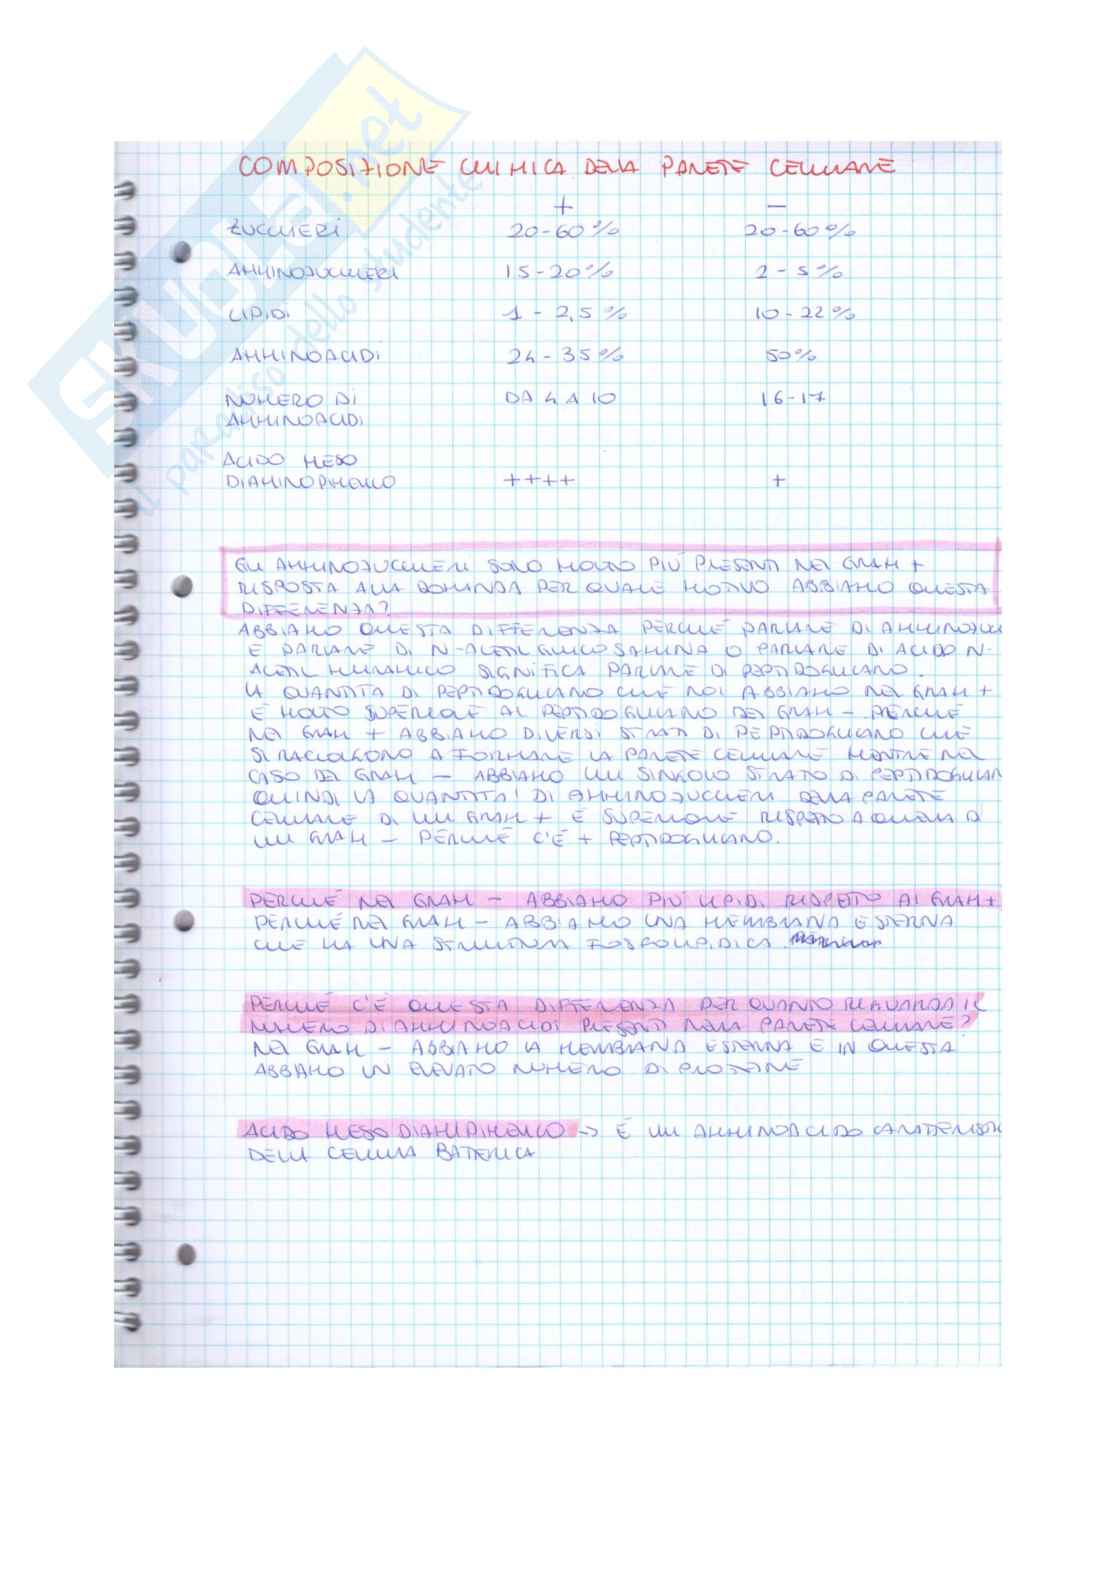 SKUOLA.net
il paradiso dello studente
COMPOSIZIONE CHIMICA DELLA PARETE CELLULARE
+ −
ZUCCHERI 20-60% 20-60%
AMMINOZUCCHERI 15-20% 2-5%
LIPIDI 1-2,5% 10-22%
AMMINOACIDI 24-35% 50%
NUMERO DI DA 4 A 10 16-17
AMMINOACIDI
ACIDO MESO
DIAMINOPIMELICO ++++ +
GLI AMMINOZUCCHERI SONO MOLTO PIÙ PRESENTI NEI GRAM +
RISPOSTA ALLA DOMANDA PER QUALE MOTIVO ABBIAMO QUESTA
DIFFERENZA?
ABBIAMO QUESTA DIFFERENZA PERCHÉ PARLARE DI AMMINOZUC
E PARLARE DI N-ACETIL GLUCOSAMINA O PARLARE DI ACIDO N-
ACETIL MURAMICO SIGNIFICA PARLARE DI PEPTIDOGLICANO.
LA QUANTITÀ DI PEPTIDOGLICANO CHE NOI ABBIAMO NEI GRAM +
È MOLTO SUPERIORE AL PEPTIDOGLICANO DEI GRAM − PERCHÉ
NEI GRAM + ABBIAMO DIVERSI STRATI DI PEPTIDOGLICANO CHE
SI RACCOLGONO A FORMARE LA PARETE CELLULARE MENTRE NEL
CASO DEI GRAM − ABBIAMO UN SINGOLO STRATO DI PEPTIDOGLICAN
QUINDI LA QUANTITÀ DI AMMINOZUCCHERI DELLA PARETE
CELLULARE DI UN GRAM + È SUPERIORE RISPETTO A QUELLA DI
UN GRAM − PERCHÉ C'È + PEPTIDOGLICANO.
PERCHÉ NEI GRAM − ABBIAMO PIÙ LIPIDI RISPETTO AI GRAM +
PERCHÉ NEI GRAM − ABBIAMO UNA MEMBRANA ESTERNA
CHE HA UNA STRUTTURA FOSFOLIPIDICA
PERCHÉ C'È QUESTA DIFFERENZA PER QUANTO RIGUARDA IL
NUMERO DI AMMINOACIDI PRESENTI NELLA PARETE CELLULARE?
NEI GRAM − ABBIAMO LA MEMBRANA ESTERNA E IN QUESTA
ABBIAMO UN ELEVATO NUMERO DI PROTEINE
ACIDO MESO DIAMIPIMELICO → È UN AMMINOACIDO CARATTERISTI
DELLA CELLULA BATTERICA